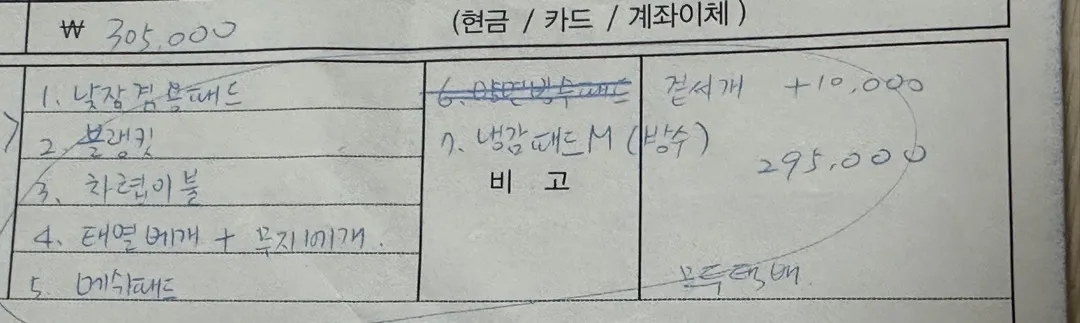 ₩ 305,000
(현금 / 카드 / 계좌이체)
1. 낮잠겸용패드
2. 블랭킷
3. 차렵이불
4. 태열베개 + 무지베개.
5. 메쉬패드
6. 양면방수패드
7. 냉감패드M (방수)
비 고
겉서개 +10,000
295,000
모두택배